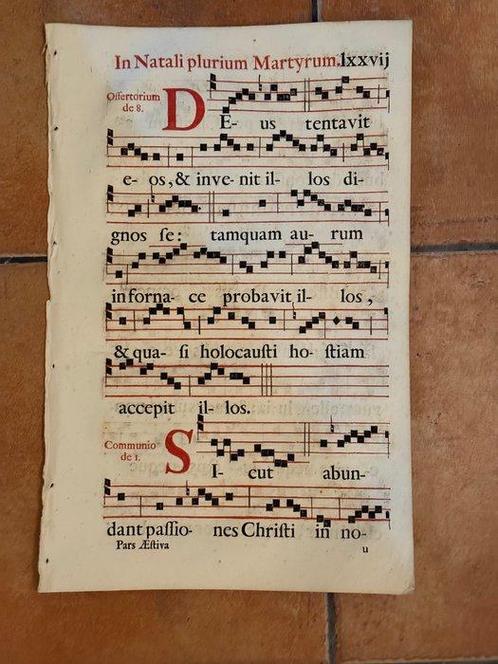 In Natali plurium Martyrum. lxxvij
Offertorium
de 8.
DE- us tentavit
e- os, & inve- nit il- los di-
gnos ſe: tamquam au- rum
in forna- ce probavit il- los,
& qua- ſi holocauſti ho- ſtiam
accepit il- los.
Communio
de 1.
SI- cut abun-
dant paſſio- nes Chriſti in no-
Pars Æſtiva u